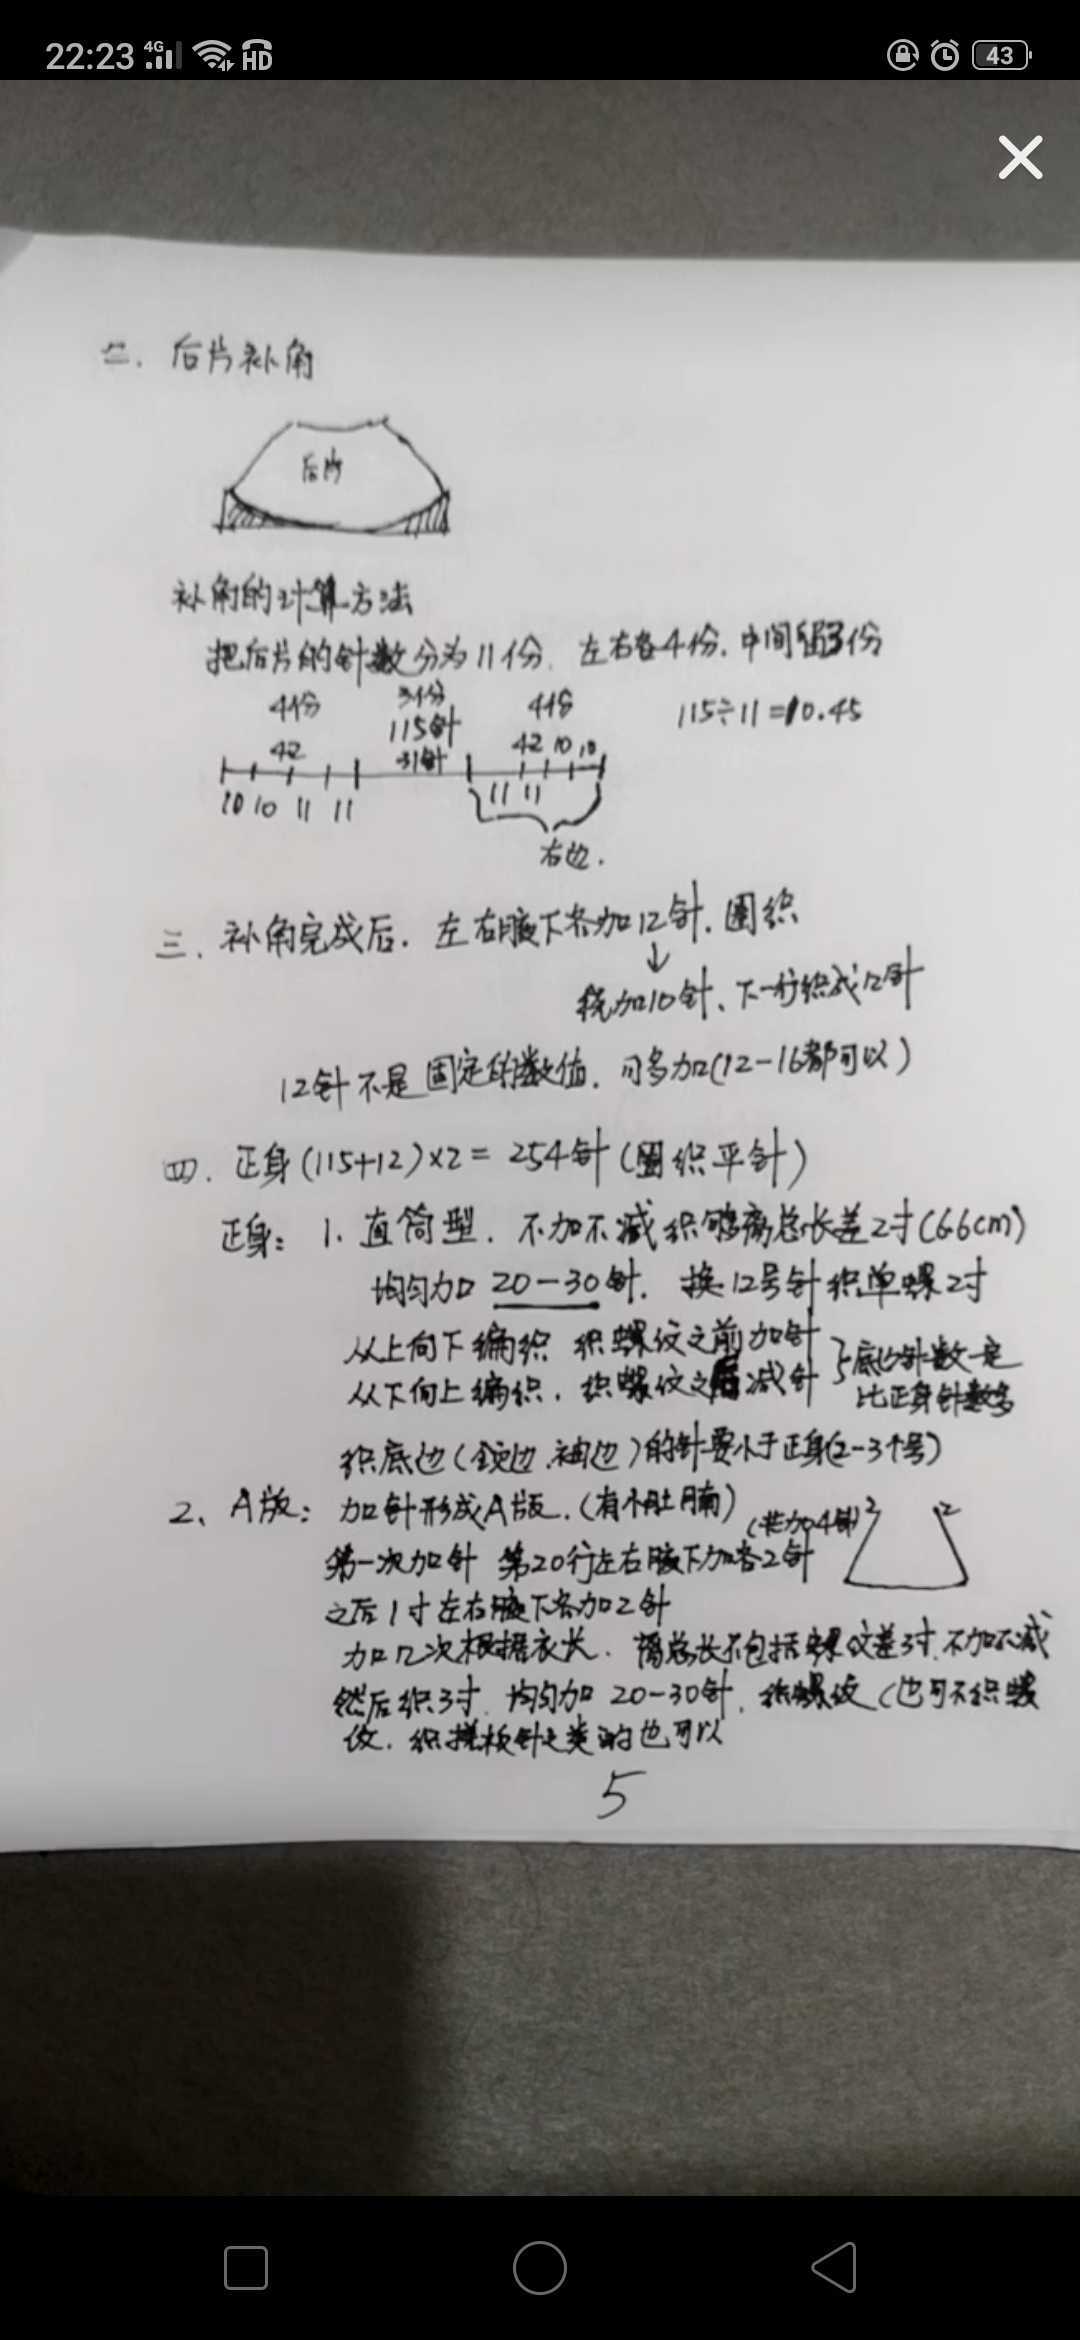 22:23 4G HD 43
二. 后片补角
后片
补角的计算方法
把后片的针数分为11份. 左右各4份. 中间留3份
4份 3份 4份
115针 115÷11=10.45
42 31针 42 10 10
10 10 11 11 11 11
右边.
三. 补角完成后. 左右腋下各加12针. 圈织
绕加10针、下一行织成12针
12针不是固定的数值. 可多加(12-16都可以)
四. 正身(115+12)×2= 254针(圈织平针)
正身: 1. 直筒型. 不加不减织够离总长差2寸(6.6cm)
均匀加 20-30针. 换12号针织单螺2寸
从上向下编织 织螺纹之前加针
从下向上编织. 织螺纹之后减针
底边针数一定
比正身针数多
织底边(领边.袖边)的针要小于正身(2-3个号)
2、A版: 加针形成A版.(有小肚腩)
(共加4针) 2 2
第一次加针 第20行左右腋下加各2针
之后1寸左右腋下各加2针
加几次根据衣长. 离总长不包括螺纹差3寸.不加不减
然后织3寸. 均匀加 20-30针. 织螺纹(也可不织螺
纹. 织搓板针之类的也可以
5